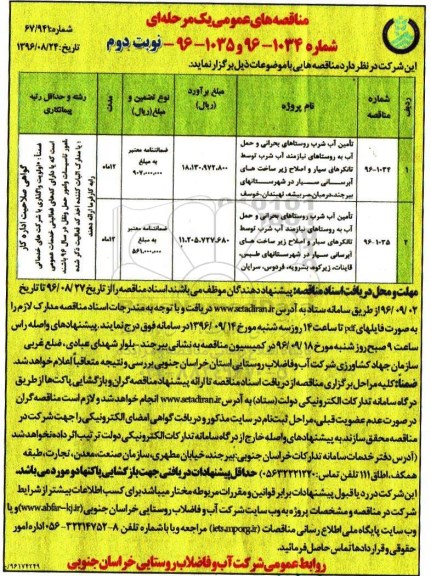 مناقصه های عمومی یک مرحله ای
شماره ۱۰۳۴-۹۶ و ۱۰۳۵-۹۶ - نوبت دوم
شماره: ۶۷/۹۴
تاریخ: ۱۳۹۶/۰۸/۲۴
این شرکت در نظر دارد مناقصه هایی با موضوعات ذیل برگزار نمایند.
ردیف
شماره مناقصه
نام پروژه
مبلغ برآورد (ریال)
نوع تضمین و مبلغ (ریال)
مدت
رشته و حداقل رتبه پیمانکاری
۱
۹۶-۱۰۳۴
تأمین آب شرب روستاهای بحرانی و حمل
آب به روستاهای نیازمند آب شرب توسط
تانکرهای سیار و اصلاح زیر ساخت های
آبرسانی سیار در شهرستانهای
بیرجند، درمیان، سربیشه، نهبندان، خوسف
۱۸.۱۳۰.۹۷۲.۸۰۰
ضمانتنامه معتبر
به مبلغ
۹۰۷.۰۰۰.۰۰۰
۱۲ماه
۲
۹۶-۱۰۳۵
تأمین آب شرب روستاهای بحرانی و حمل
آب به روستاهای نیازمند آب شرب توسط
تانکرهای سیار و اصلاح زیر ساخت های
آبرسانی سیار در شهرستانهای طبس،
قاینات، زیرکوه، بشرویه، فردوس، سرایان
۱۱.۲۰۵.۷۲۷.۶۸۰
ضمانتنامه معتبر
به مبلغ
۵۶۱.۰۰۰.۰۰۰
۱۲ماه
گواهی صلاحیت اداره کار
مهلت و محل دریافت اسناد مناقصه: پیشنهاد دهندگان موظف می باشند اسناد مناقصه را از تاریخ ۹۶/۰۸/۲۷ تا تاریخ
۹۶/۰۹/۰۲ از طریق سامانه ستاد به آدرس www.setadiran.ir دریافت و با توجه به مندرجات اسناد مناقصه مدارک لازم را
به صورت فایلهای pdf تا ساعت ۱۴ روز سه شنبه مورخ ۱۳۹۶/۰۹/۱۴ در سامانه فوق درج نمایند. پیشنهادهای واصله راس
ساعت ۹ صبح روز شنبه مورخ ۹۶/۰۹/۱۸ در کمیسیون مناقصه به نشانی بیرجند - بلوار شهدای عبادی، ضلع غربی
سازمان جهاد کشاورزی شرکت آب و فاضلاب روستایی استان خراسان جنوبی بررسی و نتیجه متعاقباً اعلام خواهد شد.
ضمناً: کلیه مراحل برگزاری مناقصه از دریافت اسناد مناقصه تا ارائه پیشنهاد مناقصه گران و بازگشایی پاکت ها از طریق
درگاه سامانه تدارکات الکترونیکی دولت (ستاد) به آدرس www.setadiran.ir انجام خواهد شد و لازم است مناقصه گران
در صورت عدم عضویت قبلی، مراحل ثبت نام در سایت مذکور و دریافت گواهی امضای الکترونیکی را جهت شرکت در
مناقصه محقق سازند. به پیشنهادهای واصله خارج از درگاه سامانه تدارکات الکترونیکی دولت ترتیب اثر داده نخواهد شد
(آدرس دفتر خدمات سامانه تدارکات الکترونیکی: بیرجند، خیابان مطهری، سازمان صنعت، معدن، تجارت، طبقه
همکف، اطاق ۱۱۱ تلفن تماس: ۰۵۶۳۲۲۲۱۲۲۰) حداقل پیشنهادات دریافتی جهت بازگشایی پاکتها دو مورد می باشد.
این شرکت در رد یا قبول پیشنهادات برابر قوانین و مقررات مربوطه مختار میباشد برای کسب اطلاعات بیشتر از شرایط
شرکت در مناقصه و مشخصات پروژه به وب سایت شرکت آب و فاضلاب روستایی خراسان جنوبی (www.abfar-kj.ir) و یا
وب سایت پایگاه ملی اطلاع رسانی مناقصات (iets.mporg.ir) مراجعه و یا با شماره تلفن ۸-۳۲۲۱۴۷۵۲-۰۵۶ اداره امور
حقوقی و قراردادها تماس حاصل فرمائید.
روابط عمومی شرکت آب و فاضلاب روستایی خراسان جنوبی